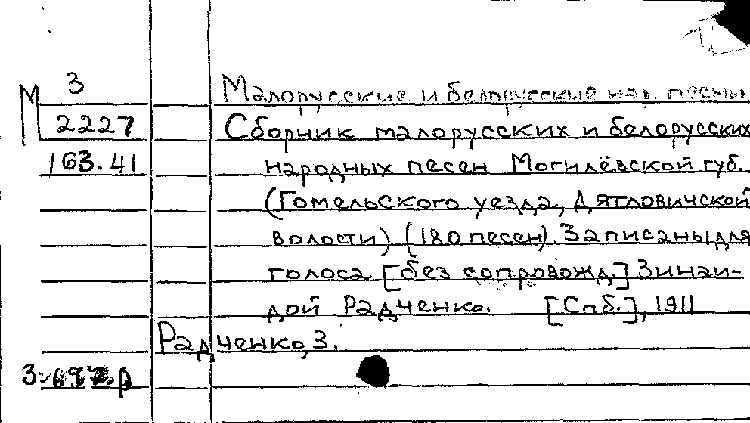 З
М
Малорусские и белорусские нар. песни
2227
Сборник малорусских и белорусских
163.41
народных песен Могилёвской губ.
(Гомельского уезда, Дятловичской
волости) (180 песен). Записаны для
голоса [без сопровожд.] Зинаи-
дой Радченко. [Спб.], 1911
Радченко, З.